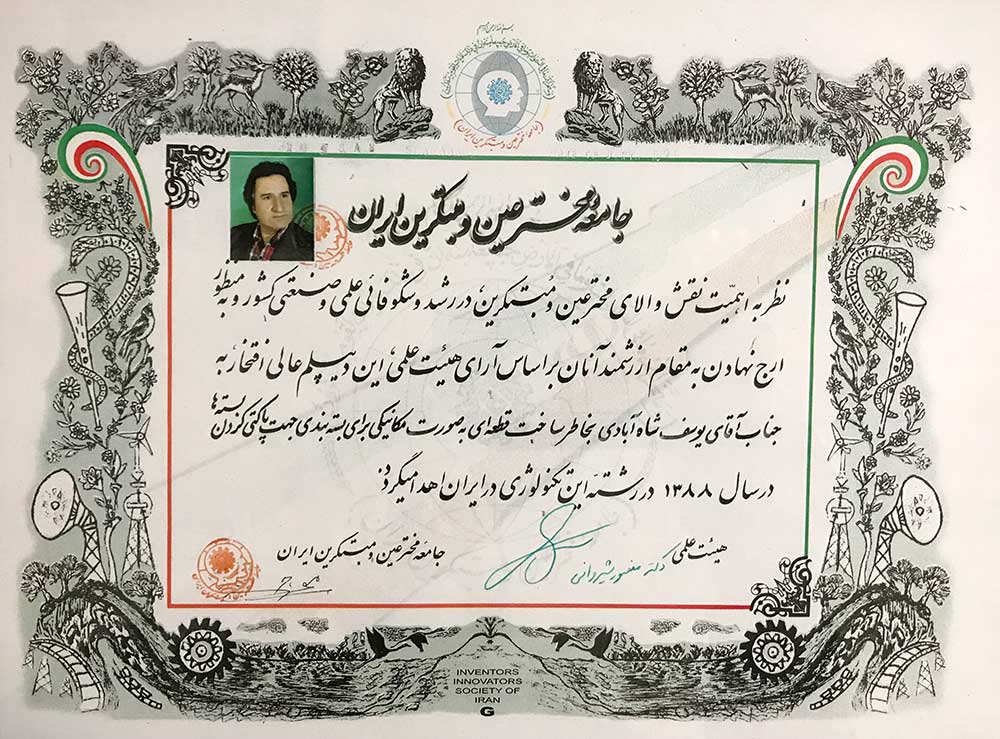 بسم الله الرحمن الرحیم
(جامعه مخترعین و مبتکرین ایران)
جامعه مخترعین و مبتکرین ایران
نظر به اهمیّت نقش والای مخترعین و مبتکرین، در رشد و شکوفائی علمی و صنعتی کشور و به منظور
ارج نهادن به مقام ارزشمند آنان بر اساس آرای هیئت علمی، این دیپلم عالی افتخار به
جناب آقای یوسف شاه آبادی بخاطر ساخت قطعه‌ای به صورت مکانیکی برای بسته بندی جهت پاکتی کردن بسته‌ها
در سال ۱۳۸۸ در رشته این تکنولوژی در ایران اهدا میگردد.
هیئت علمی
دکتر منصور شیروانی
جامعه مخترعین و مبتکرین ایران
INVENTORS
INNOVATORS
SOCIETY OF
IRAN
G